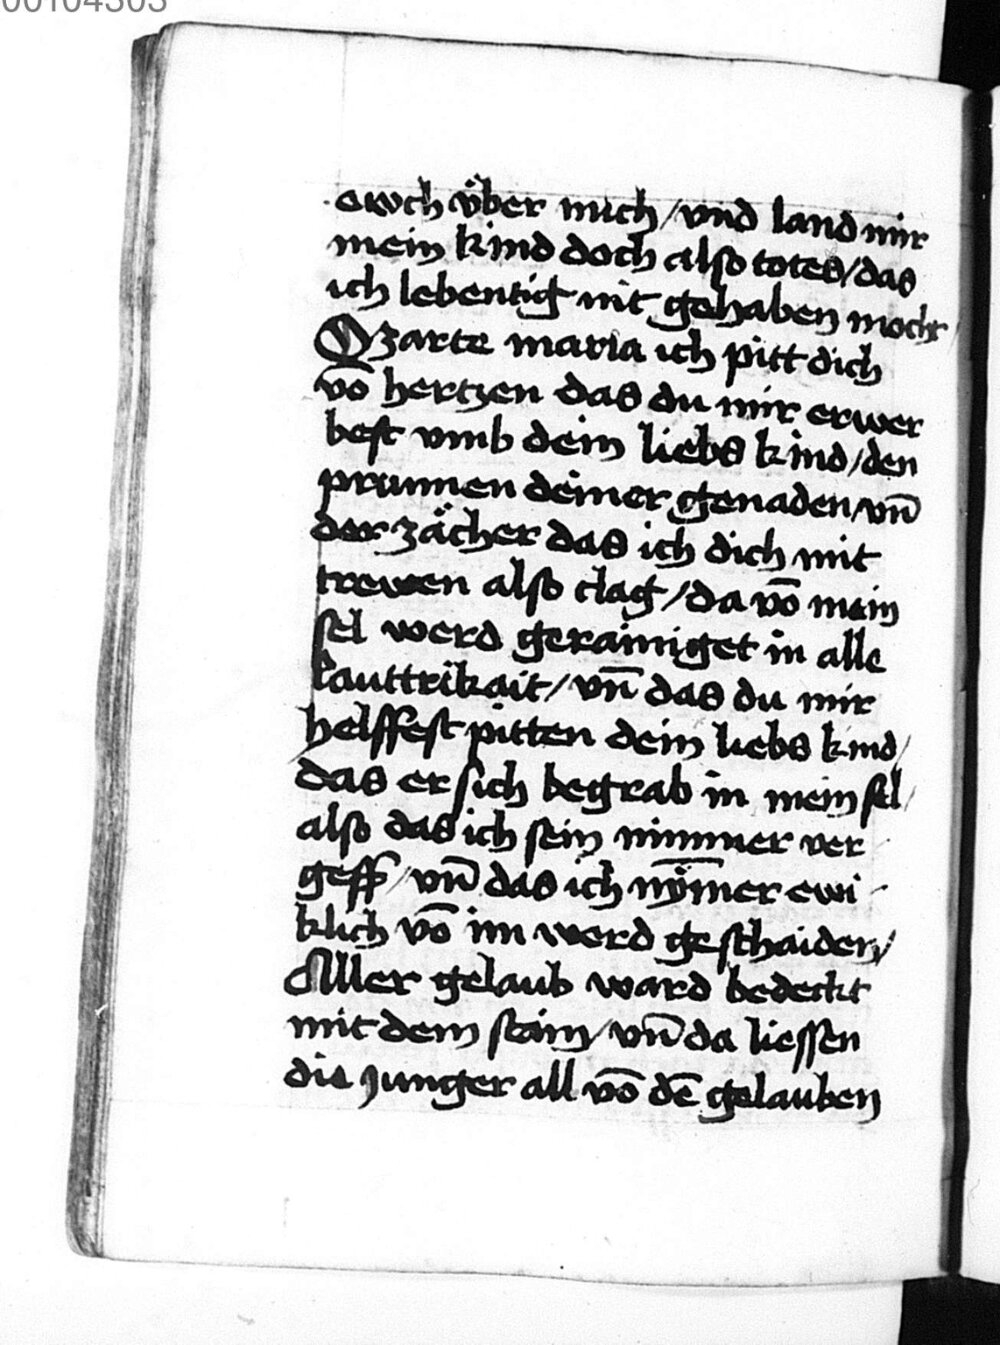 00104303
awch vͤber mich / vnd land mir
mein kind doch also totes / das
ich lebentig nit gehaben mocht /
O zarte maria ich pitt dich
vō hertzen das du mir erwer
best vmb dein liebs kind / den
prunnen deiner genaden / vn̄
der zaͤcher das ich dich mit
trewen also clag / da vō mein
sel werd gerainiget in alle
lauttrikait / vn̄ das du mir
helffest pitten dein liebs kind /
das er sich begrab in mein sel /
also das ich sein nimmer ver
gess / vn̄ das ich nȳmer ewi
klich vō im werd geschaiden /
Aller gelaub ward bedeckt
mit dem stain / vn̄ da liessen
die Junger all vō dē gelauben